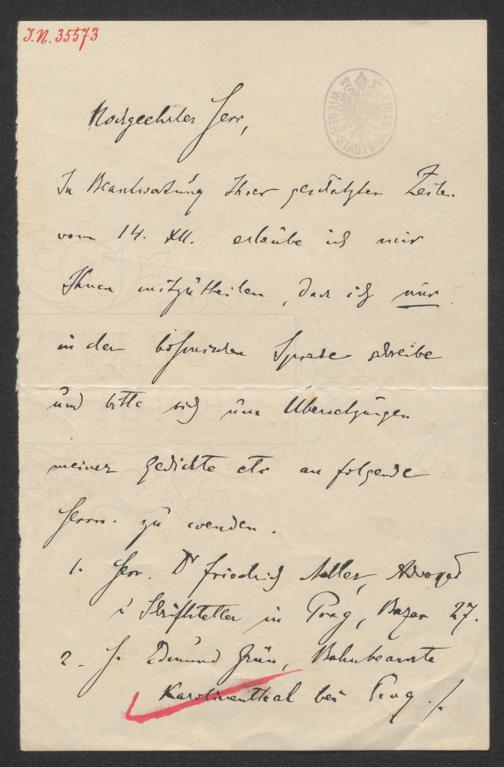 J.N. 35573
Hochgeehrter Herr,
In Beantwortung Ihrer geschätzten Zeilen
vom 14. XII. erlaube ich mir
Ihnen mitzutheilen, dass ich nur
in der böhmischen Sprache schreibe
und bitte sich um Übersetzungen
meiner Gedichte etc an folgende
Herrn. zu wenden.
1. Herr. Dr Friedrich Adler, Advocat
u Schriftsteller in Prag, Bazar 27.
2. H. Edmund Grün, Bahnbeamte
Karolinenthal bei Prag ./.